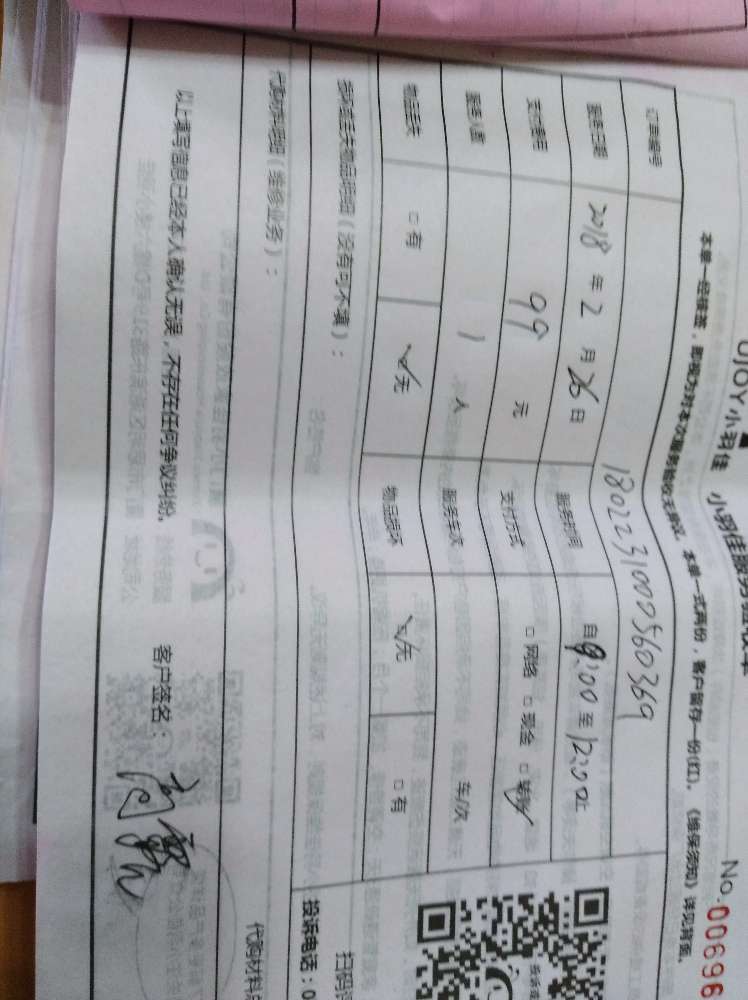 UJOY小羽佳 小羽佳服务验收单
No.00696
本单一经接签，即视为对本次服务验收无异议。本单一式两份，客户留存一份(红)。《维保须知》详见背面。
订单编号 1802231000560369
服务日期 2018年2月26日 服务时间 自9:00至12:00止
支付费用 99元 支付方式 □网络 □现金 □
服务人数 1人 服务车次 车/次
物品丢失 □有 ☑无 物品损坏 ☑无 □有
损坏或丢失物品明细（没有可不填）：
代购材料明细（维修业务）：
代购材料
扫码
投诉电话：0
以上填写信息已经本人确认无误，不存在任何争议纠纷。 客户签名：